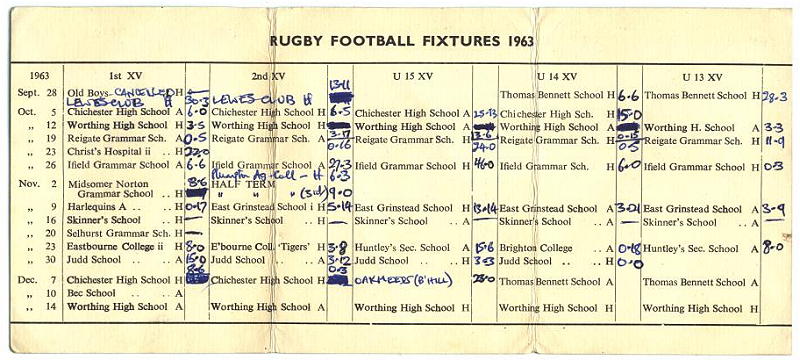 RUGBY FOOTBALL FIXTURES 1963
1963 1st XV 2nd XV U 15 XV U 14 XV U 13 XV
13-11
Sept. 28 Old Boys CANCELLED H — Thomas Bennett School H 6-6 Thomas Bennett School H 28-3
LEWES CLUB H 30-3 LEWES CLUB H
Oct. 5 Chichester High School A 6-0 Chichester High School H 6-5 Chichester High School A 25-13 Chichester High Sch. H 15-0
„ 12 Worthing High School H 3-5 Worthing High School H Worthing High School A Worthing High School A Worthing H. School A 3-3
„ 19 Reigate Grammar Sch. A 0-5 Reigate Grammar Sch. A 3-17 Reigate Grammar Sch. A 13-6 Reigate Grammar Sch. A 0-15 Reigate Grammar Sch H 11-9
„ 23 Christ's Hospital ii H 22-0 0-16 24-0 0-5
„ 26 Ifield Grammar School A 6-6 Ifield Grammar School A 27-3 Ifield Grammar School H 46-0 Ifield Grammar Sch. H 6-0 Ifield Grammar School H 3-0
Plumpton Ag. Coll - H 6-3
Nov. 2 Midsomer Norton 8-6 HALF TERM
Grammar School .. H „ „ (3rd) 9-0
„ 9 Harlequins A .. H 0-17 East Grinstead School i H 5-14 East Grinstead School H 13-14 East Grinstead School A 3-21 East Grinstead School A 3-9
„ 16 Skinner's School .. H — Skinner's School .. H — Skinner's School .. A — Skinner's School .. A — Skinner's School .. A —
„ 20 Selhurst Grammar Sch. H
„ 23 Eastbourne College ii H 8-0 E'bourne Coll. 'Tigers' H 3-8 Huntley's Sec. School A 15-6 Brighton College .. A 0-18 Huntley's Sec. School A 8-0
„ 30 Judd School .. A 15-0 Judd School .. A 3-12 Judd School .. H 3-3 Judd School .. H 0-0
8-6 0-3
Dec. 7 Chichester High School H Chichester High School H OAKMEEDS (B'HILL) 23-0 Thomas Bennett School A Thomas Bennett School A
„ 10 Bec School .. A
„ 14 Worthing High School A Worthing High School A Worthing High School H Worthing High School H Worthing High School H